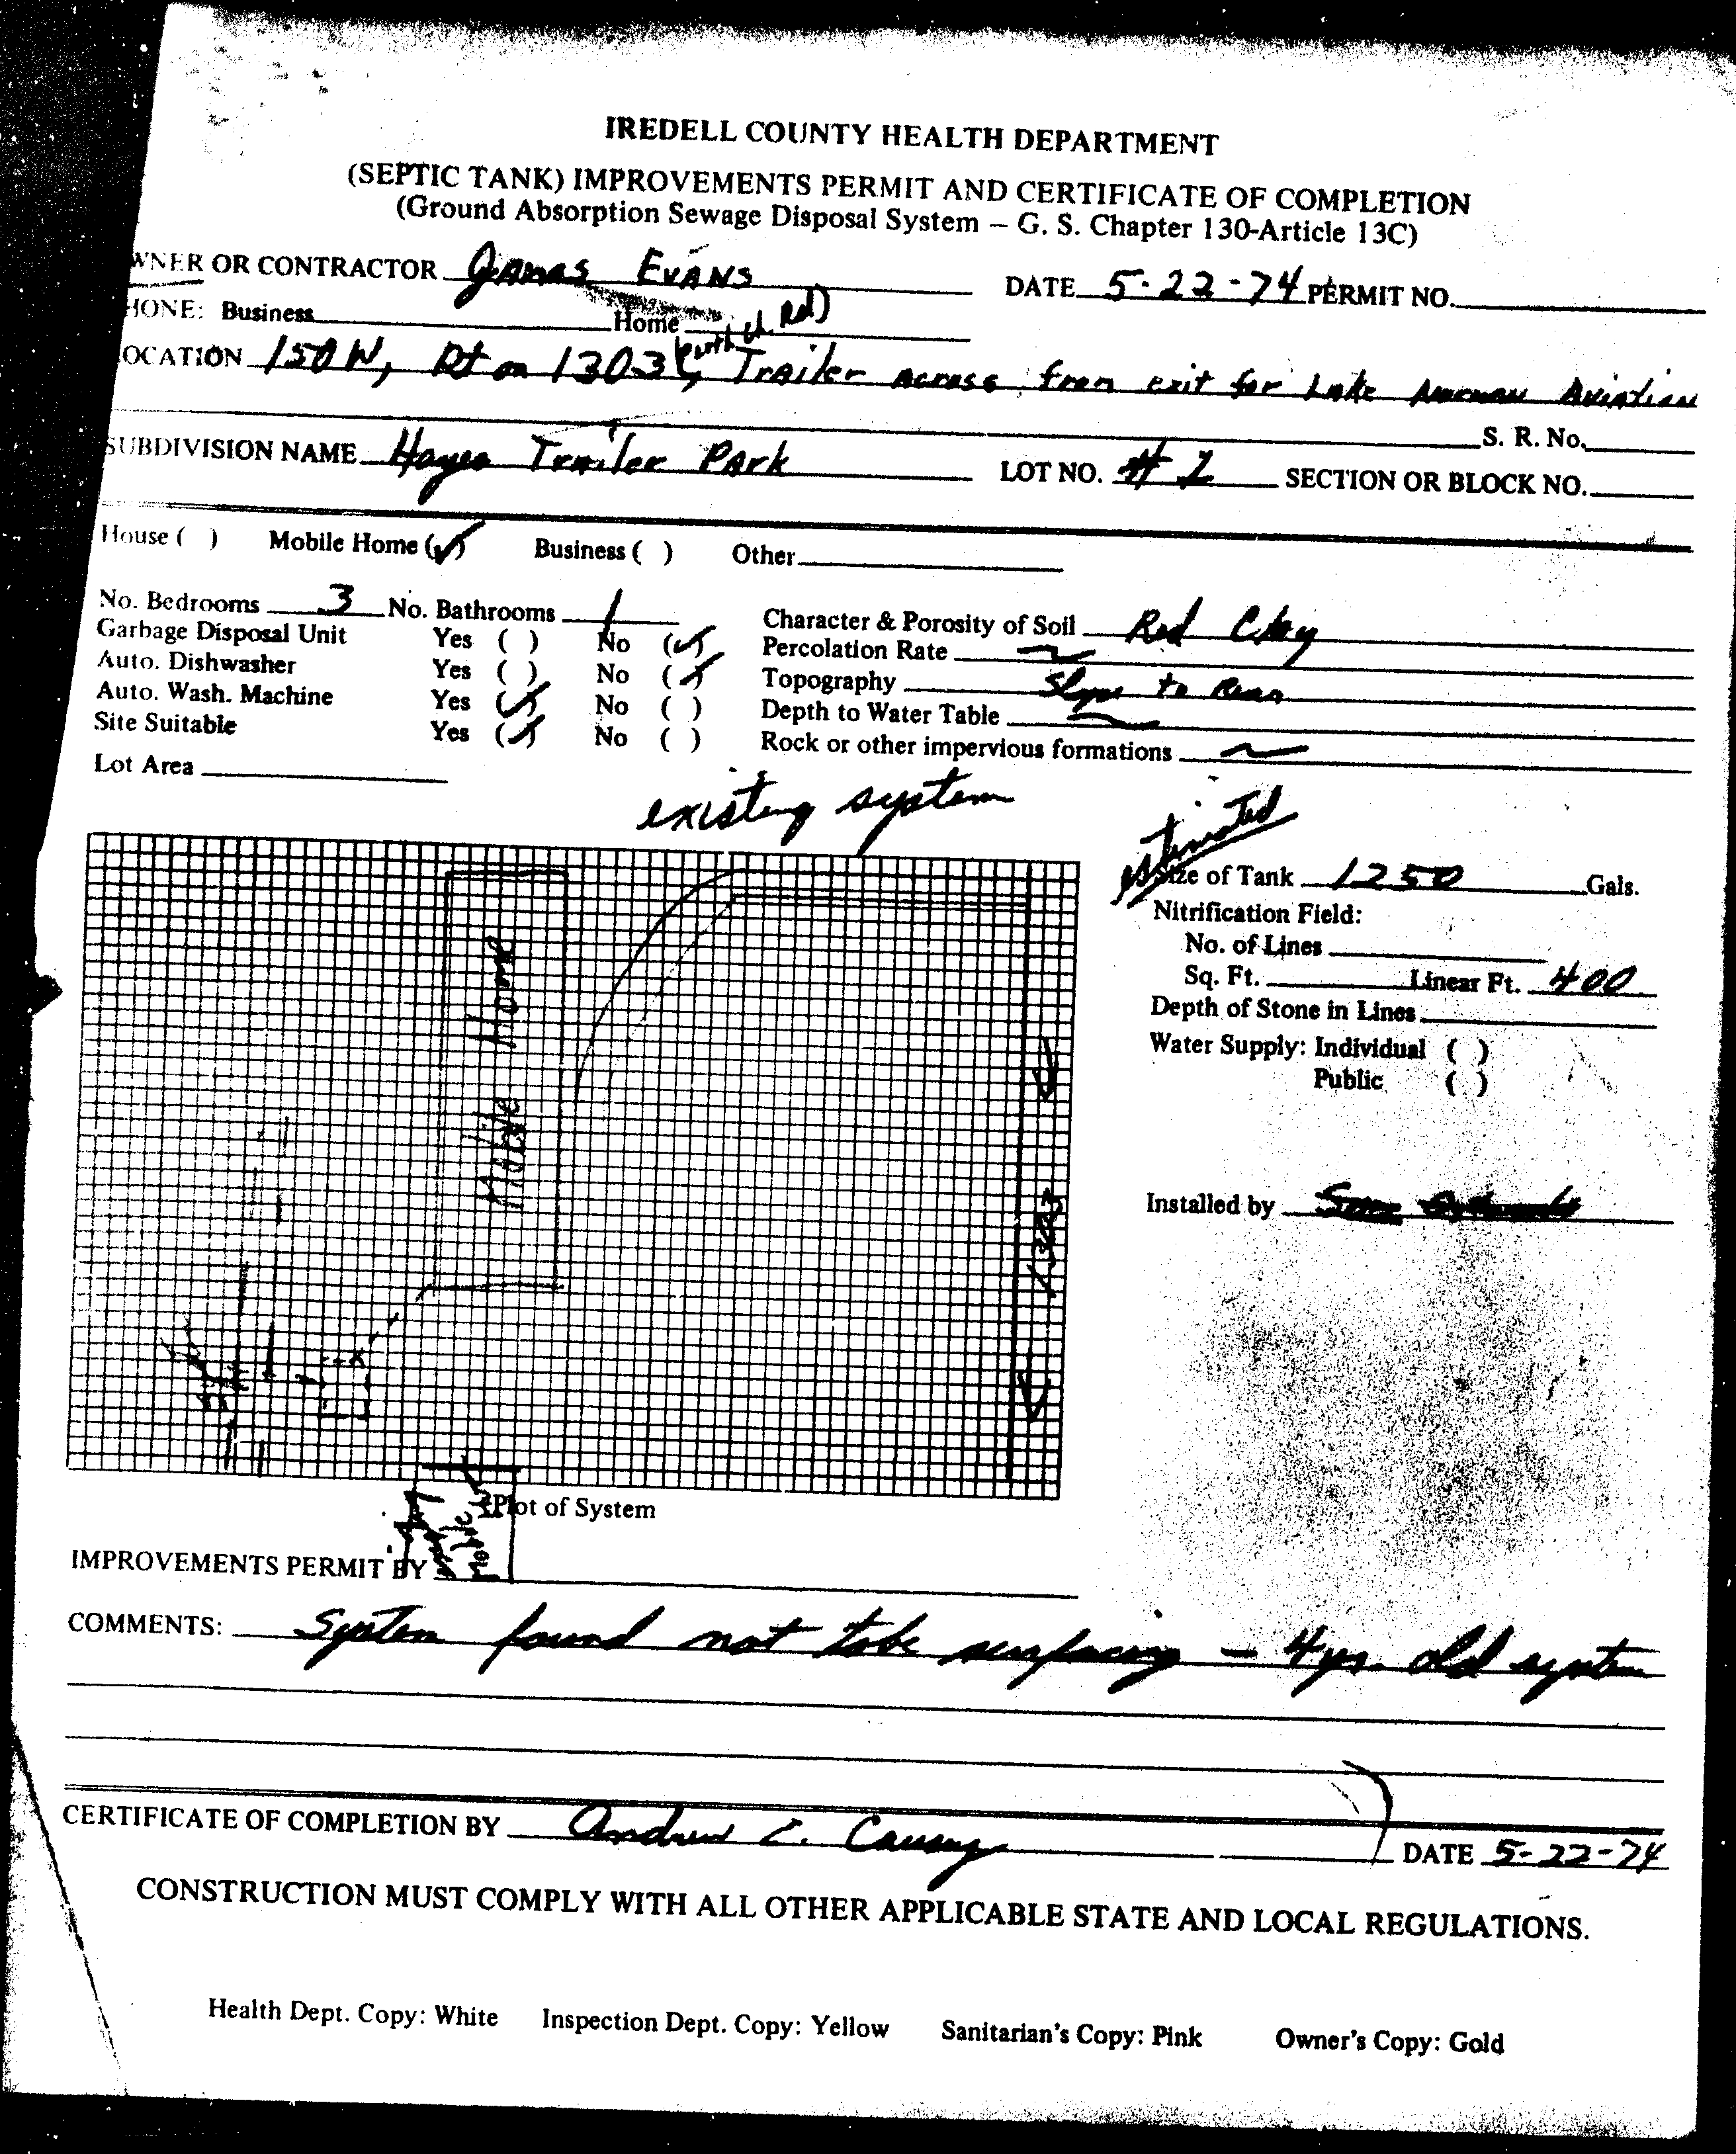 IREDELL COUNTY HEALTH DEPARTMENT
(SEPTIC TANK) IMPROVEMENTS PERMIT AND CERTIFICATE OF COMPLETION
(Ground Absorption Sewage Disposal System – G. S. Chapter 130-Article 13C)
WNER OR CONTRACTOR James Evans DATE 5-22-74 PERMIT NO.
HONE: Business Home
(Perth ch. Rd)
OCATION 150 W, Rt on 1303, Trailer across from exit for Lake Norman Aviation
S. R. No.
SUBDIVISION NAME Hayes Trailer Park LOT NO. # 1 SECTION OR BLOCK NO.
House ( ) Mobile Home (✓) Business ( ) Other
No. Bedrooms 3 No. Bathrooms 1 Character & Porosity of Soil Red Clay
Garbage Disposal Unit Yes ( ) No (✓) Percolation Rate ~
Auto. Dishwasher Yes ( ) No (✓) Topography Slope to Rear
Auto. Wash. Machine Yes (✓) No ( ) Depth to Water Table ~
Site Suitable Yes (✓) No ( ) Rock or other impervious formations ~
Lot Area
existing system
estimated
Size of Tank 1250 Gals.
Nitrification Field:
No. of Lines
Sq. Ft. Linear Ft. 400
Depth of Stone in Lines
Water Supply: Individual ( )
Public ( )
Mobile Home
1303
Installed by
Plot of System
Mobile
IMPROVEMENTS PERMIT BY
COMMENTS: System found not to be surfacing – 4 yr. old system
CERTIFICATE OF COMPLETION BY Andrew C. Causey DATE 5-22-74
CONSTRUCTION MUST COMPLY WITH ALL OTHER APPLICABLE STATE AND LOCAL REGULATIONS.
Health Dept. Copy: White Inspection Dept. Copy: Yellow Sanitarian's Copy: Pink Owner's Copy: Gold